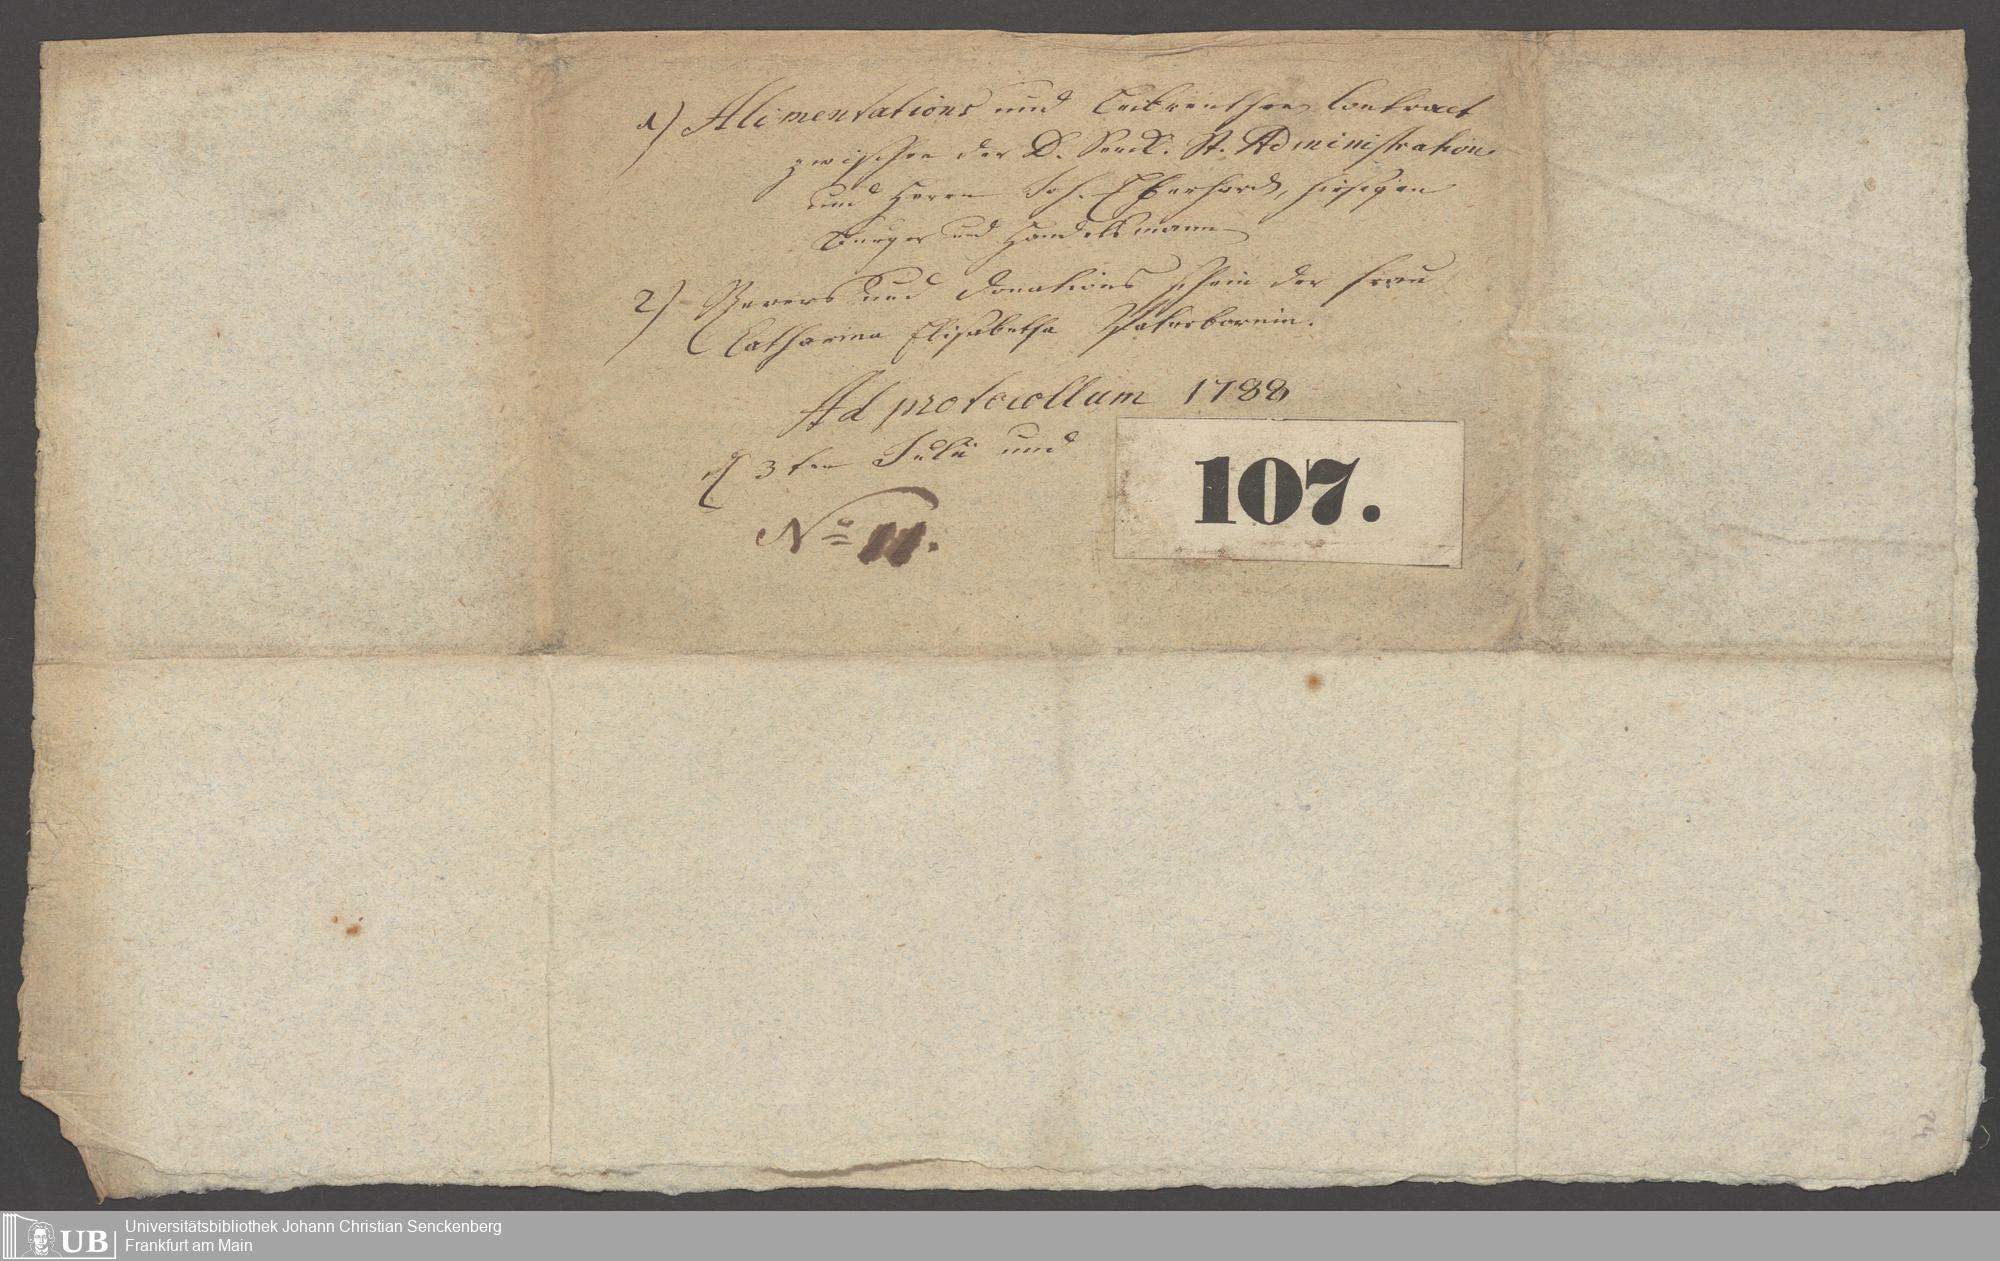 1) Alimentations und Leibrenthen Contract
zwischen der D. Senck. St. Administration
und Herrn Joh. Eberhard, hiesigen
Burger und Handelsmann
2) Revers und Donations schein der Frau
Catharina Elisabetha Paterbornin.
Ad protocollum 1788
d 3ten Julii und
No 11.
107.
24
UB
Universitätsbibliothek Johann Christian Senckenberg
Frankfurt am Main